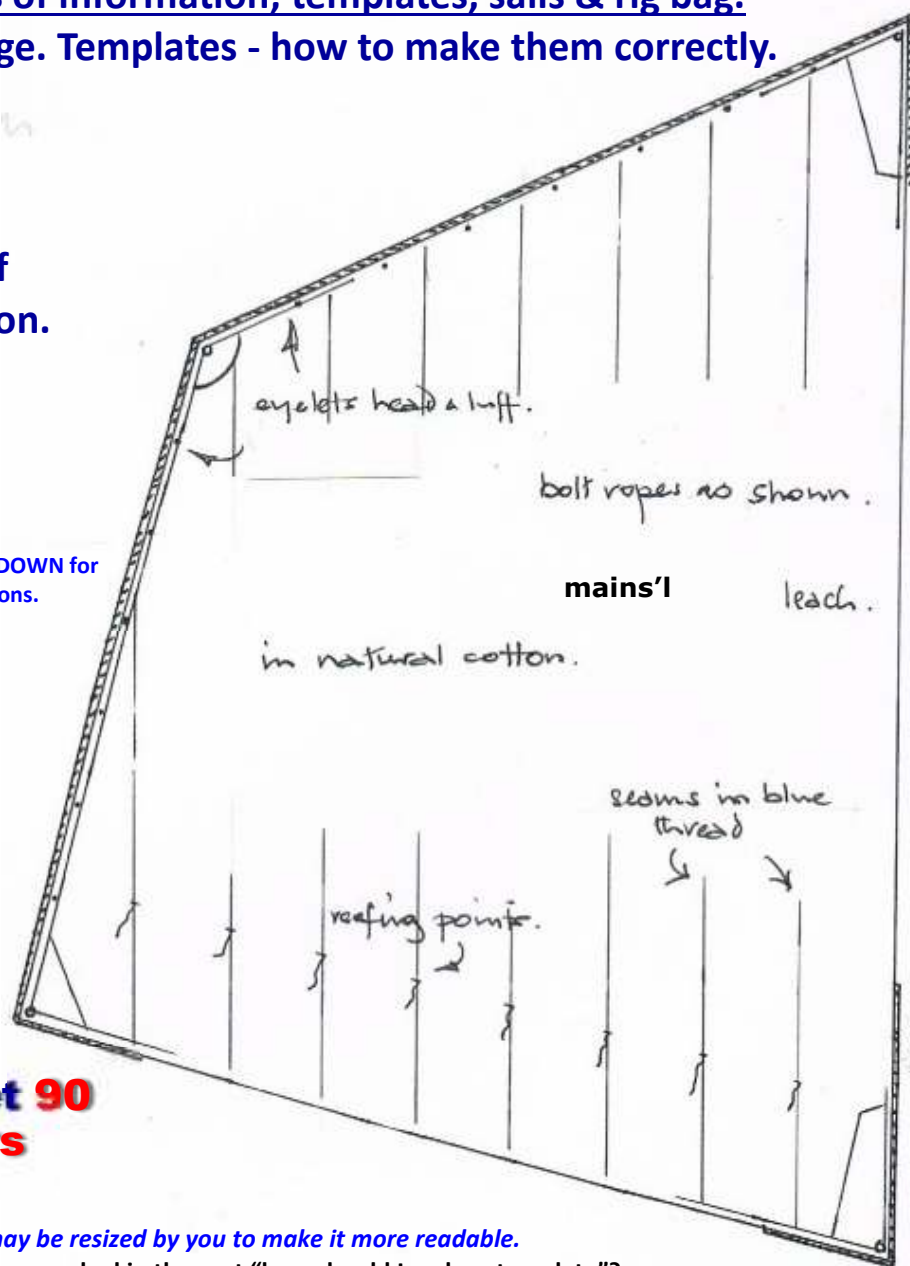 s of information, templates, sails & rig bag.
ge. Templates - how to make them correctly.
f
on.
eyelets head & luff.
bolt ropes as shown.
DOWN for
ons.
mains'l
leach.
in natural cotton.
seams in blue
thread
reefing points.
et 90
s
may be resized by you to make it more readable.